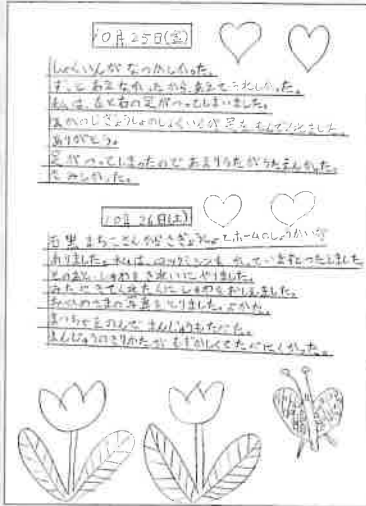 10月25日(金)
しょくいんがなつかしかった。
ずっとあえなかったから、あえてうれしかった。
私は、左と右の足がつってしまいました。
ほかのじぎょうしょのしょくいんが足をもんでくれました。
ありがとう。
足がつってしまったのであまりうたがうたえんかった。
さみしかった。
10月26日(土)
まちこさんがさぎょうしょとホームのしょうかいが
ありました。私は、
そのあと、しゅわをきれいにやりました。
みたにきてくれた人にしゅわをおしえました。
の写真をとりました。よかった。
まっちゃをのんで、まんじゅうもたべた。
まんじゅうのきりかたがむずかしくてたべにくかった。